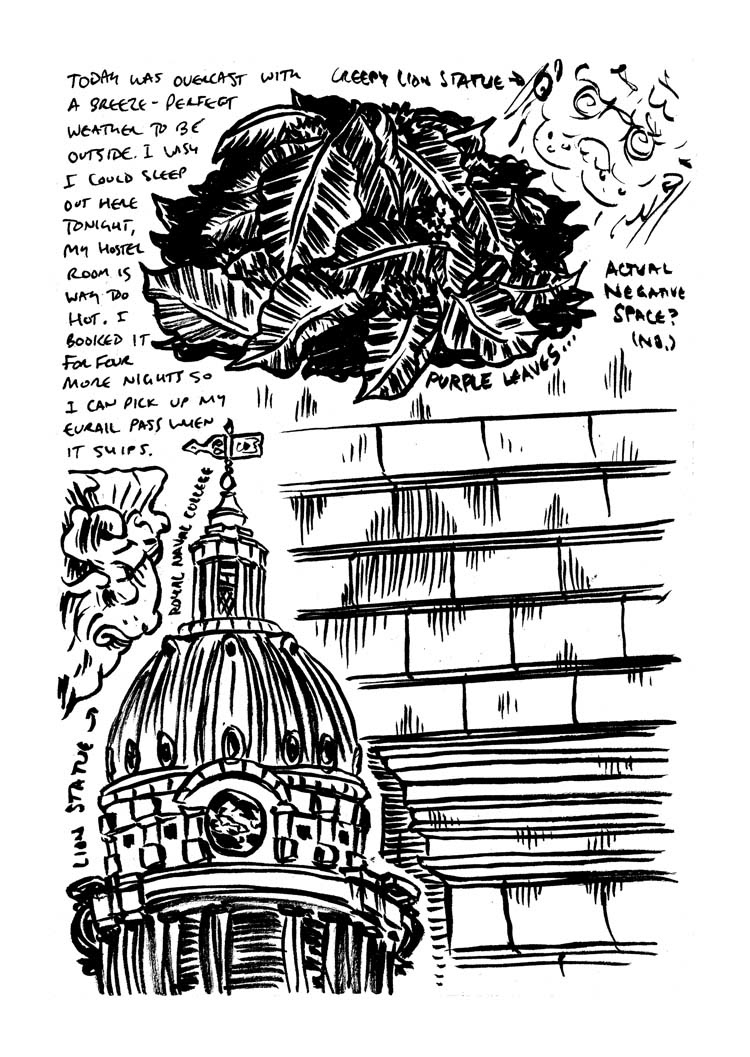 TODAY WAS OVERCAST WITH
A BREEZE - PERFECT
WEATHER TO BE
OUTSIDE. I WISH
I COULD SLEEP
OUT HERE
TONIGHT,
MY HOSTEL
ROOM IS
WAY TOO
HOT. I
BOOKED IT
FOR FOUR
MORE NIGHTS SO
I CAN PICK UP MY
EURAIL PASS WHEN
IT SHIPS.
CREEPY LION STATUE →
ACTUAL
NEGATIVE
SPACE?
(NO.)
PURPLE LEAVES...
ROYAL NAVAL COLLEGE
LION STATUE →